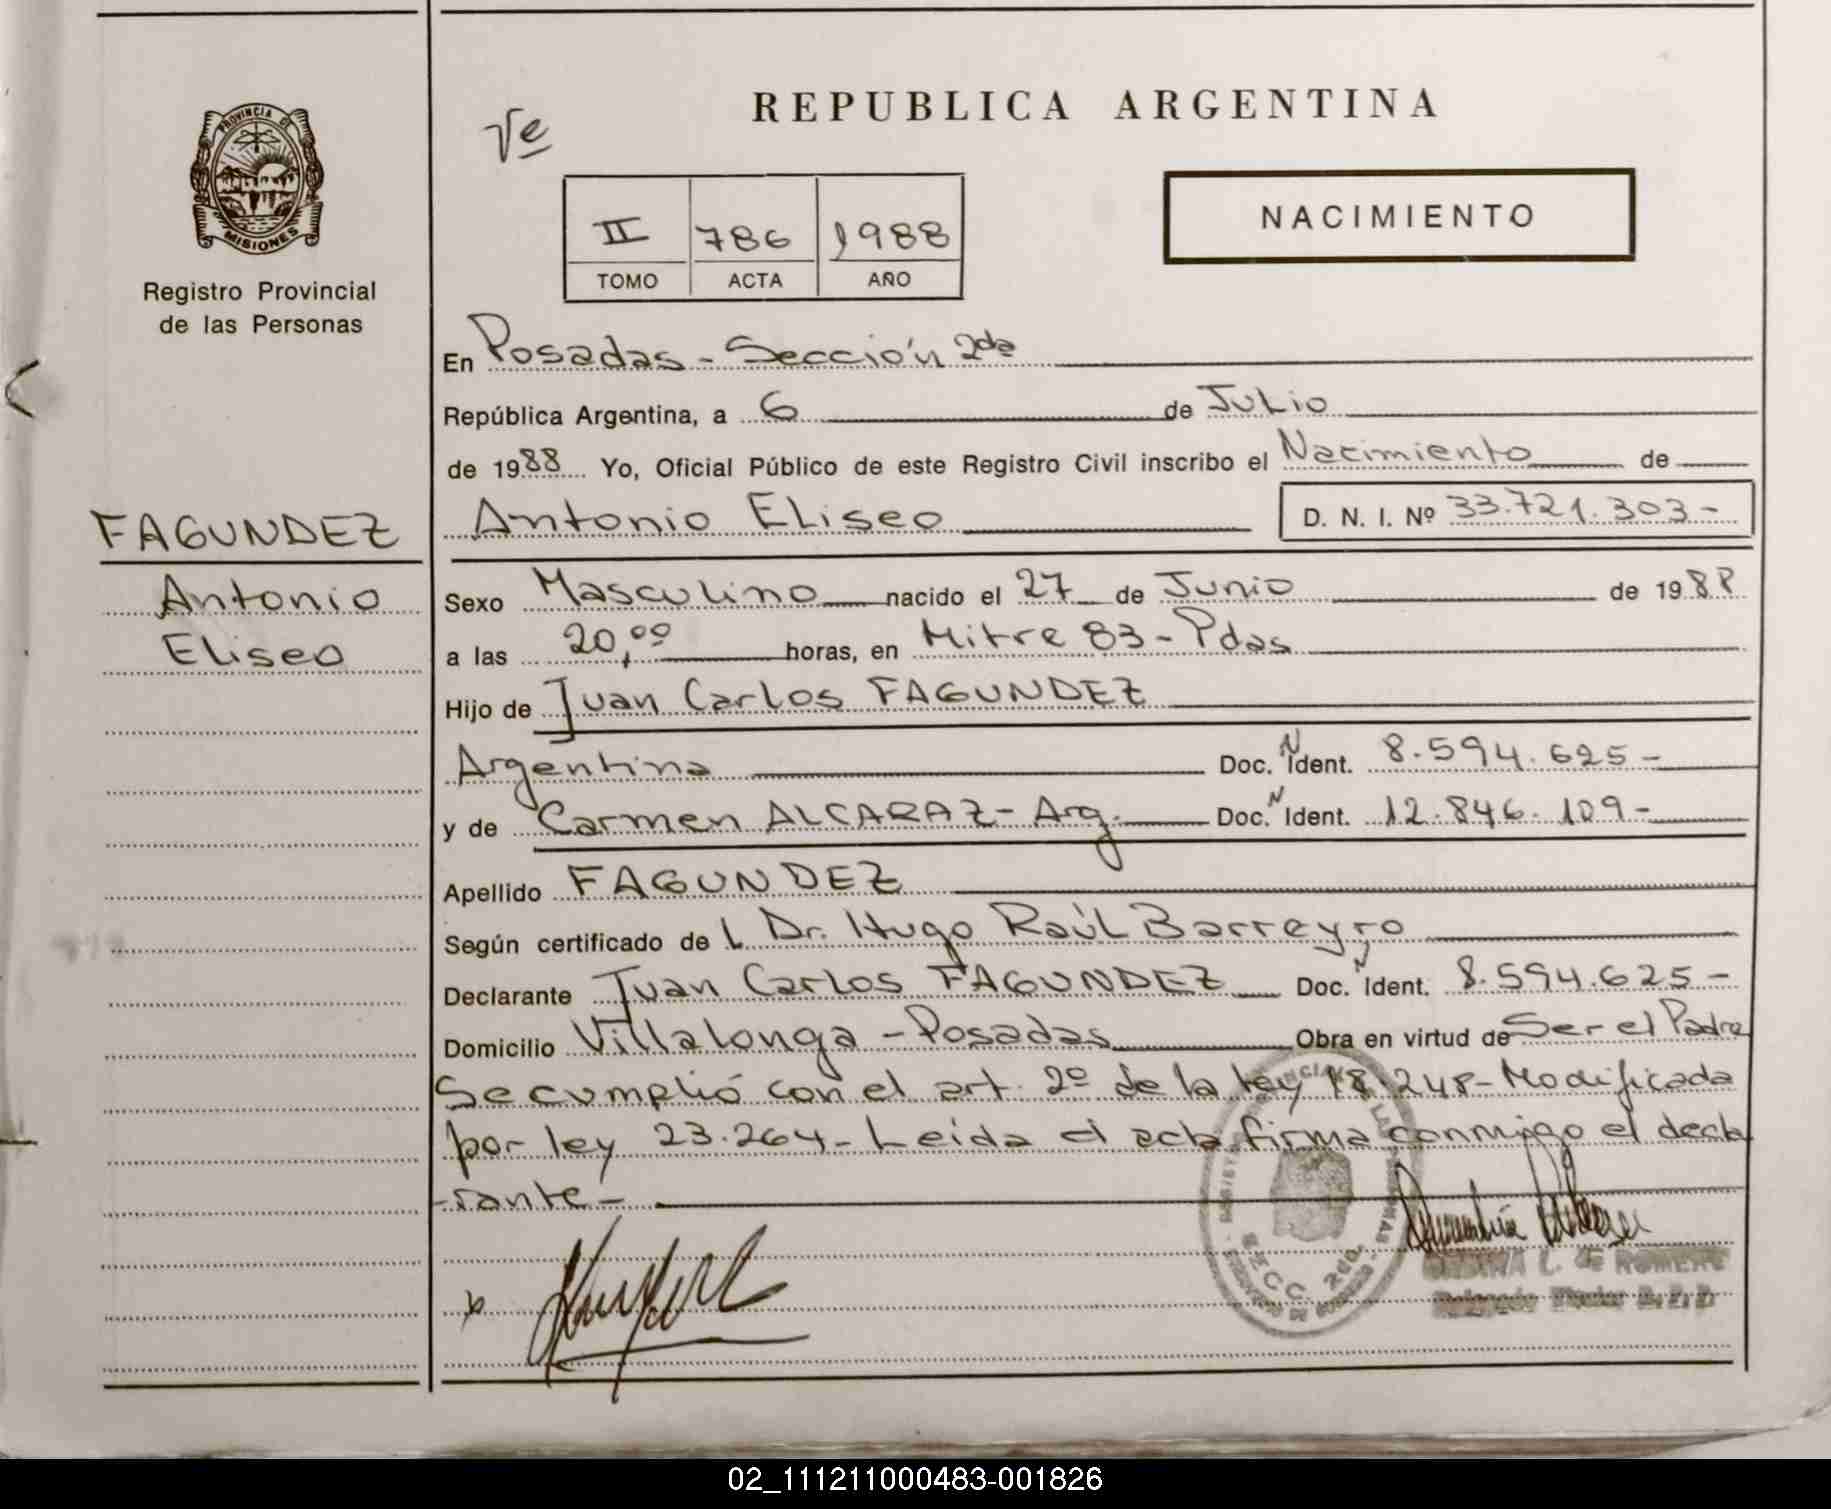 PROVINCIA DE
MISIONES
Registro Provincial
de las Personas
FAGUNDEZ
Antonio
Eliseo
REPUBLICA ARGENTINA
NACIMIENTO
II 786 1988
TOMO ACTA AÑO
En Posadas - Sección 2da
República Argentina, a 6 de Julio
de 1988 Yo, Oficial Público de este Registro Civil inscribo el Nacimiento de
Antonio Eliseo D. N. I. Nº 33.721.303-
Sexo Masculino nacido el 27 de Junio de 1988
a las 20,00 horas, en Mitre 83 - Pdas
Hijo de Juan Carlos FAGUNDEZ
Argentina Doc. N Ident. 8.594.625-
y de Carmen ALCARAZ - Arg. Doc. N Ident. 12.846.109-
Apellido FAGUNDEZ
Según certificado de l Dr. Hugo Raúl Barreyro
Declarante Juan Carlos FAGUNDEZ Doc. N Ident. 8.594.625-
Domicilio Villalonga - Posadas Obra en virtud de Ser el Padre
Se cumplió con el art. 2º de la ley 18.248 - Modificada
por ley 23.264 - Leida el acta firma conmigo el decla
-rante-
x
SECC. 2da.
L. de ROMERO
02_111211000483-001826